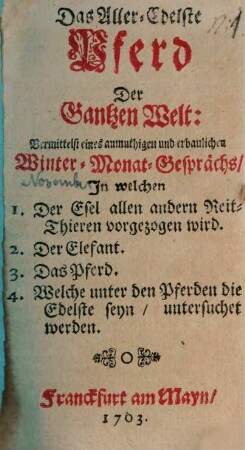 Das Aller-Edelste
Pferd
Der
Gantzen Welt:
Vermittelst eines anmuthigen und erbaulichen
Winter-Monat-Gesprächs/
November
In welchen
1. Der Esel allen andern Reit-
Thieren vorgezogen wird.
2. Der Elefant.
3. Das Pferd.
4. Welche unter den Pferden die
Edelste seyn / untersuchet
werden.
Franckfurt am Mayn/
1703.